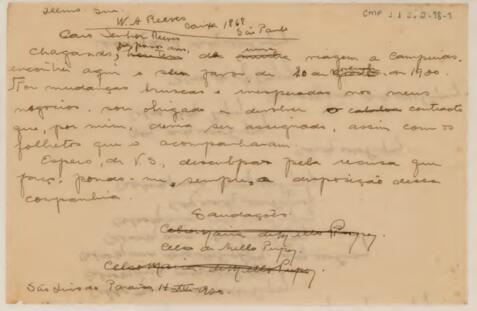 Illmo. Snr.
W. A. Reeves
Caixa 1868
São Paulo
CMP
Caro Senhor Reeves
Chegando, de uma viagem a Campinas,
encontrei aqui o seu favor de de 1900.
Por mudanças bruscas e inesperadas nos meus
negocios, sou obrigado a devolver o contracto
que, por mim, devia ser assignado, assim com os
folhetos que o acompanharam.
Espero, de V. S., desculpas pela recusa que
faço, pondo-me, sempre, a disposição dessa
companhia.
Saudações
Celso Maria de Mello Pupo
Celso de Mello Pupo
Celso Maria de Mello Pupo
São Luis do Paraitinga